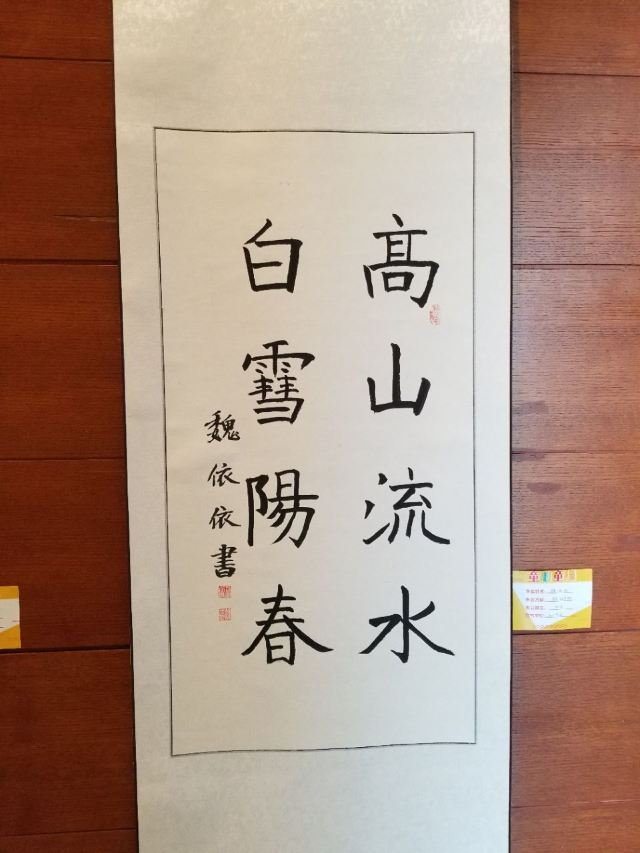 高山流水
白雪陽春
魏依依書